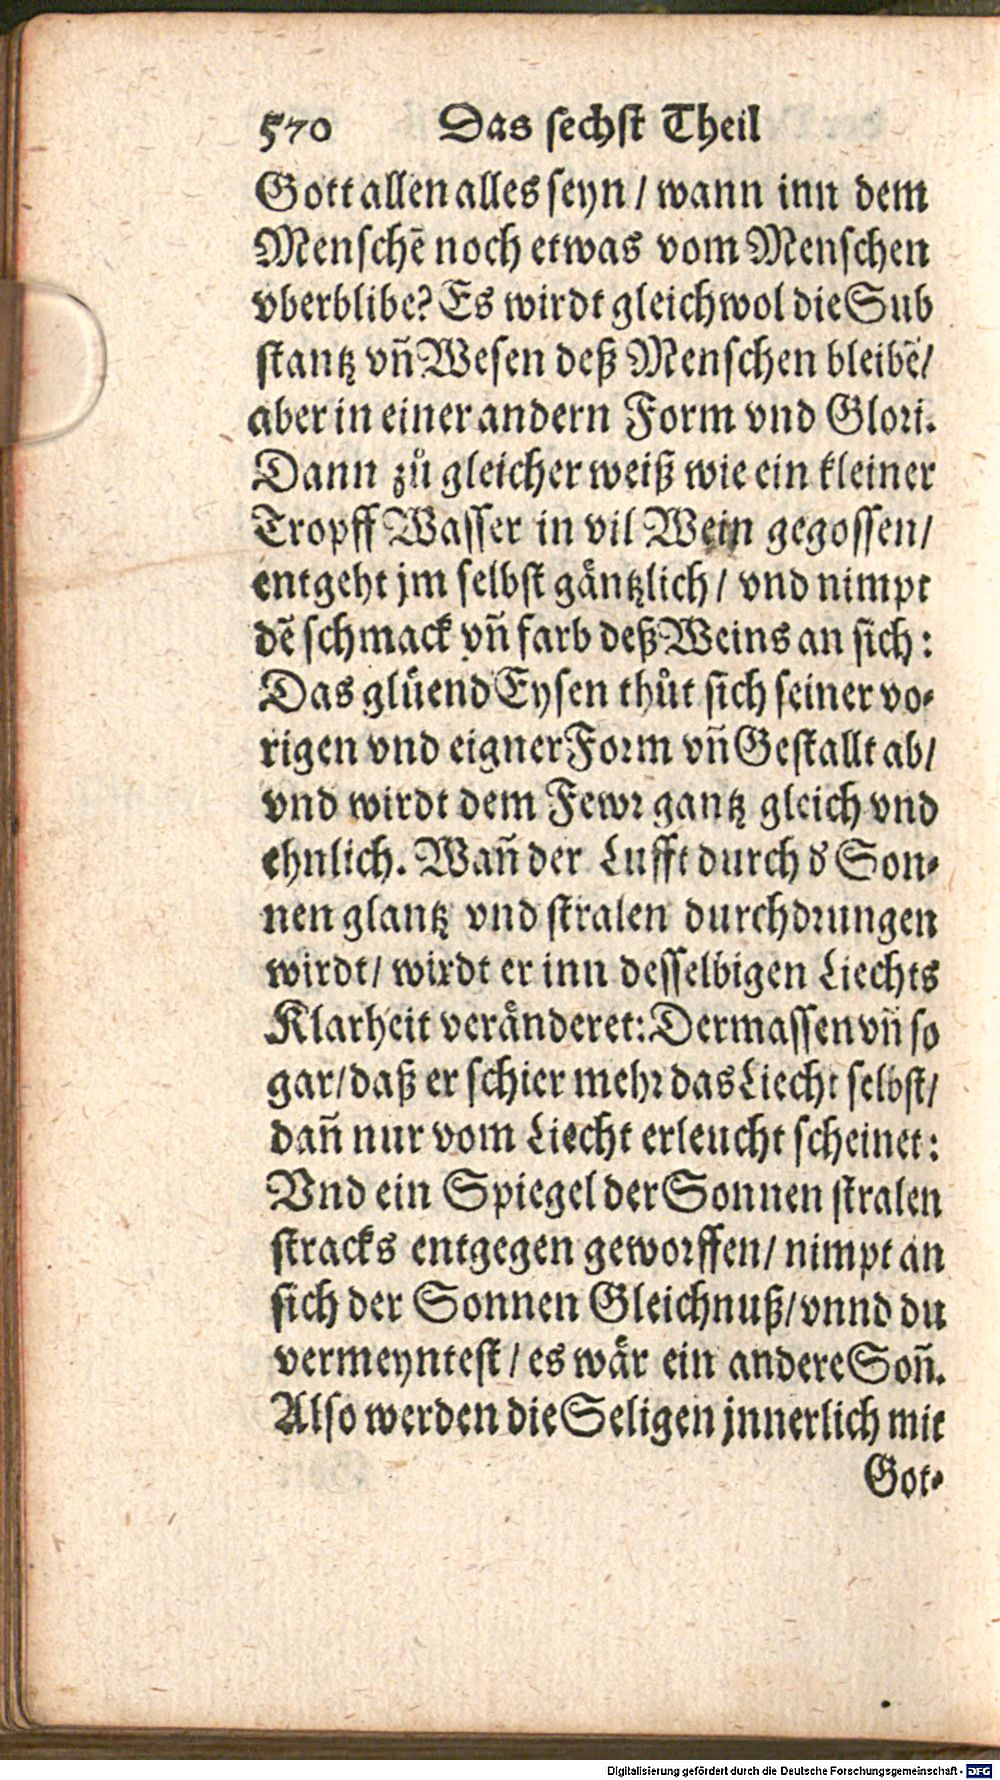 570 Das sechst Theil
Gott allen alles seyn / wann inn dem
Menschē noch etwas vom Menschen
vberblibe? Es wirdt gleichwol die Sub
stantz vñ Wesen deß Menschen bleibē/
aber in einer andern Form vnd Glori.
Dann zů gleicher weiß wie ein kleiner
Tropff Wasser in vil Wein gegossen/
entgeht jm selbst gäntzlich / vnd nimpt
dē schmack vñ farb deß Weins an sich:
Das glüend Eysen thůt sich seiner vo-
rigen vnd eigner Form vñ Gestallt ab/
vnd wirdt dem Fewr gantz gleich vnd
ehnlich. Wañ der Lufft durch d' Son-
nen glantz vnd stralen durchdrungen
wirdt/ wirdt er inn desselbigen Liechts
Klarheit veränderet: Dermassen vñ so
gar/ daß er schier mehr das Liecht selbst/
dañ nur vom Liecht erleucht scheinet:
Vnd ein Spiegel der Sonnen stralen
stracks entgegen geworffen/ nimpt an
sich der Sonnen Gleichnuß/ vnnd du
vermeyntest / es wär ein andere Soñ.
Also werden die Seligen jnnerlich mit
Got-
Digitalisierung gefördert durch die Deutsche Forschungsgemeinschaft - DFG